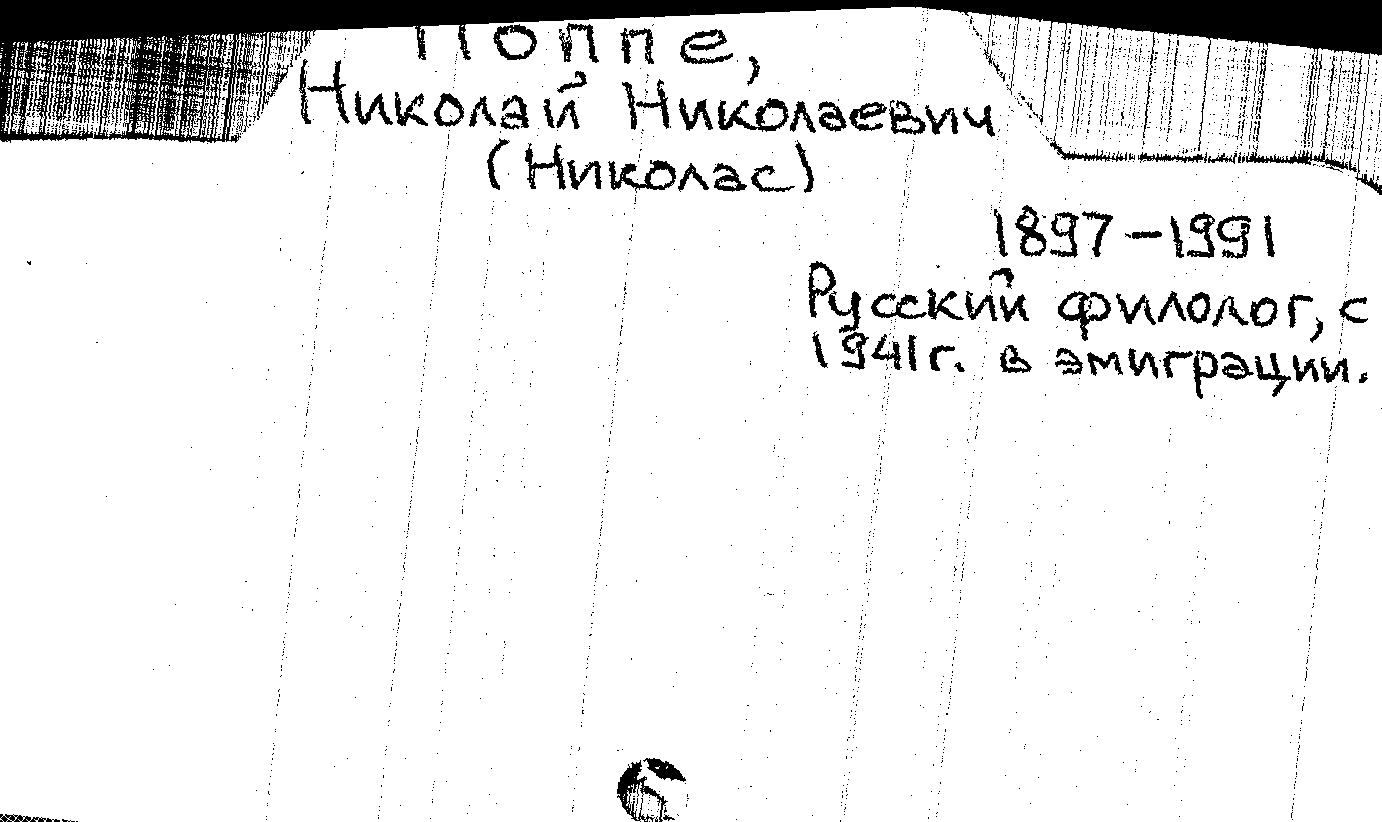 Поппе,
Николай Николаевич
(Николас)
1897-1991
Русский филолог, с
1941г. в эмиграции.